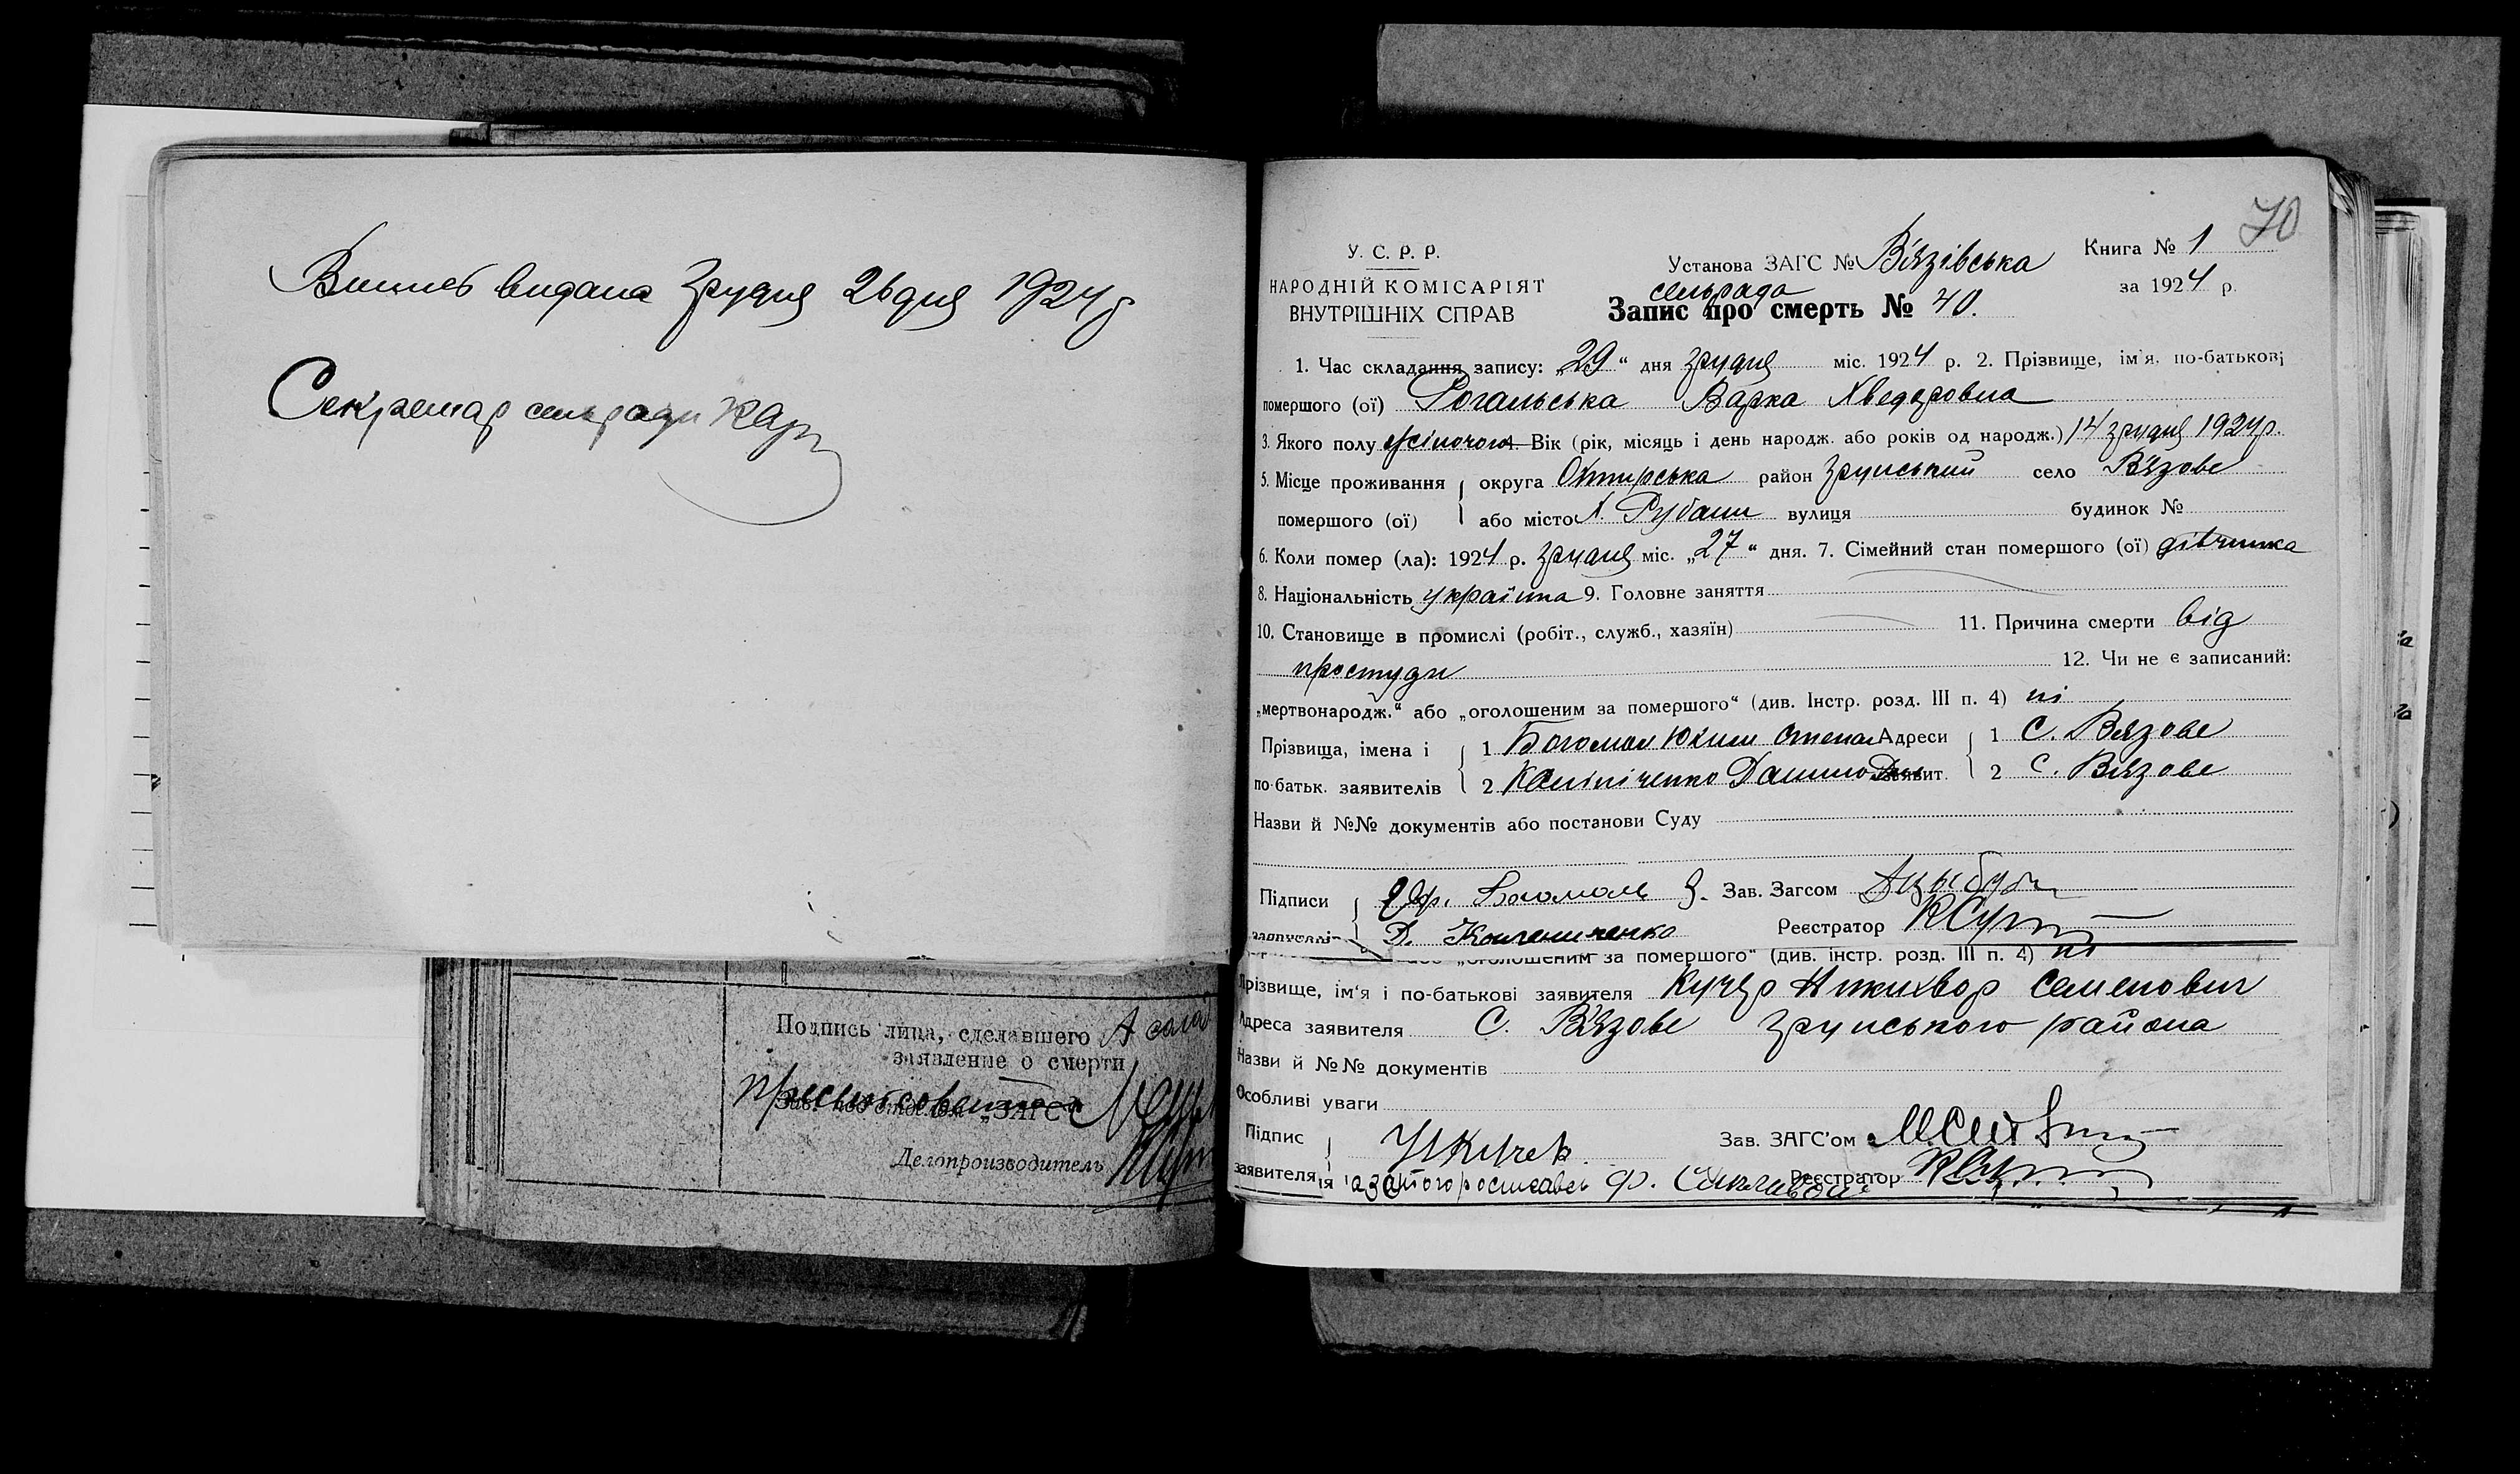 Выпись видана Грудня 26 дня 1924 р
Секретар сельради
70
У. С. Р. Р.
НАРОДНІЙ КОМІСАРІЯТ
ВНУТРІШНІХ СПРАВ
Установа ЗАГС № Вʼязівська
сельрада
Книга № 1
за 1924 р.
Запис про смерть № 40.
1. Час складання запису: „29“ дня грудня міс. 1924 р. 2. Прізвище, ім'я, по-батькові
помершого (ої) Рогальська Варка Хведоровна
3. Якого полу жіночого 4. Вік (рік, місяць і день народж. або років од народж.) 14 грудня 1924 р.
5. Місце проживання округа Охтирська район Грунський село Вʼязове
помершого (ої) або місто х. Рубани вулиця будинок №
6. Коли помер (ла): 1924 р. грудня міс. „27“ дня. 7. Сімейний стан помершого (ої) дівчинка
8. Національність україїнка 9. Головне заняття
10. Становище в промислі (робіт., служб., хазяїн) 11. Причина смерти від
простуди 12. Чи не є записаний:
„мертвонародж.“ або „оголошеним за помершого“ (див. Інстр. розд. III п. 4) ні
Прізвища, імена і 1 Богомол Юхим Степан Адреси 1 С. Вʼязове
по-батьк. заявителів 2 Данило заявит. 2 С. Вʼязове
Назви й №№ документів або постанови Суду
Підписи Богомоль Зав. Загсом
Д. Реєстратор
„оголошеним за помершого“ (див. інстр. розд. III п. 4) ні
Прізвище, ім'я і по-батькові заявителя Кучер Никихвор Семенович
Адреса заявителя С. Вʼязове Грунського района
Назви й №№ документів
Особливі уваги
Підпис Зав. ЗАГС'ом
заявителя Реєстратор
Подпись лица, сделавшего
заявление о смерти
Зав. под отделом „ЗАГС“
Делопроизводитель